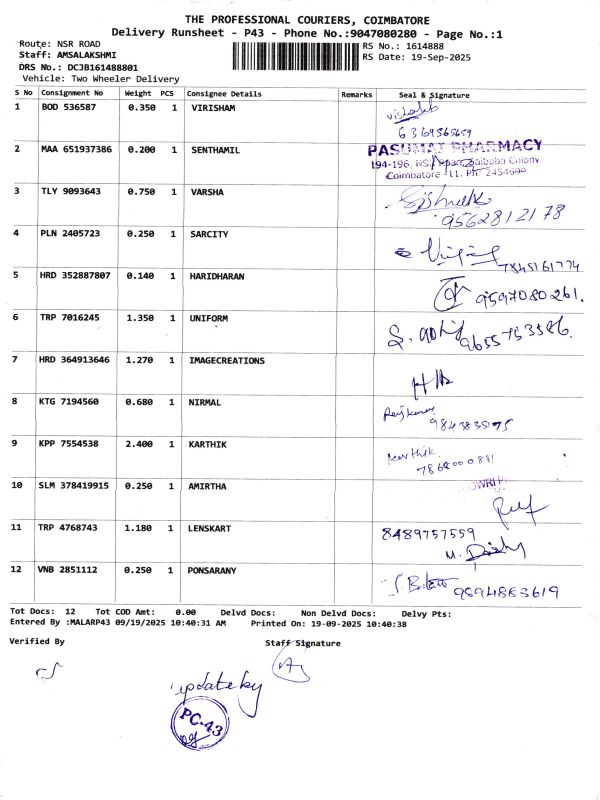 THE PROFESSIONAL COURIERS, COIMBATORE
Delivery Runsheet - P43 - Phone No.:9047080280 - Page No.:1
Route: NSR ROAD
RS No.: 1614888
Staff: AMSALAKSHMI
RS Date: 19-Sep-2025
DRS No.: DCJB161488801
Vehicle: Two Wheeler Delivery
S No Consignment No Weight PCS Consignee Details Remarks Seal & Signature
1 BOD 536587 0.350 1 VIRISHAM
6369565659
2 MAA 651937386 0.200 1 SENTHAMIL PASUMAI PHARMACY
194-196, NS Saibaba Colony
Coimbatore - 11. Ph: 2454699
3 TLY 9093643 0.750 1 VARSHA
9562812178
4 PLN 2405723 0.250 1 SARCITY
7845161774
5 HRD 352887807 0.140 1 HARIDHARAN
9597080261.
6 TRP 7016245 1.350 1 UNIFORM
9655753586.
7 HRD 364913646 1.270 1 IMAGECREATIONS
8 KTG 7194560 0.680 1 NIRMAL
9 KPP 7554538 2.400 1 KARTHIK Karthik
10 SLM 378419915 0.250 1 AMIRTHA
11 TRP 4768743 1.180 1 LENSKART 8489757559
12 VNB 2851112 0.250 1 PONSARANY
9894883619
Tot Docs: 12 Tot COD Amt: 0.00 Delvd Docs: Non Delvd Docs: Delvy Pts:
Entered By :MALARP43 09/19/2025 10:40:31 AM Printed On: 19-09-2025 10:40:38
Verified By Staff Signature
update by
PC-43